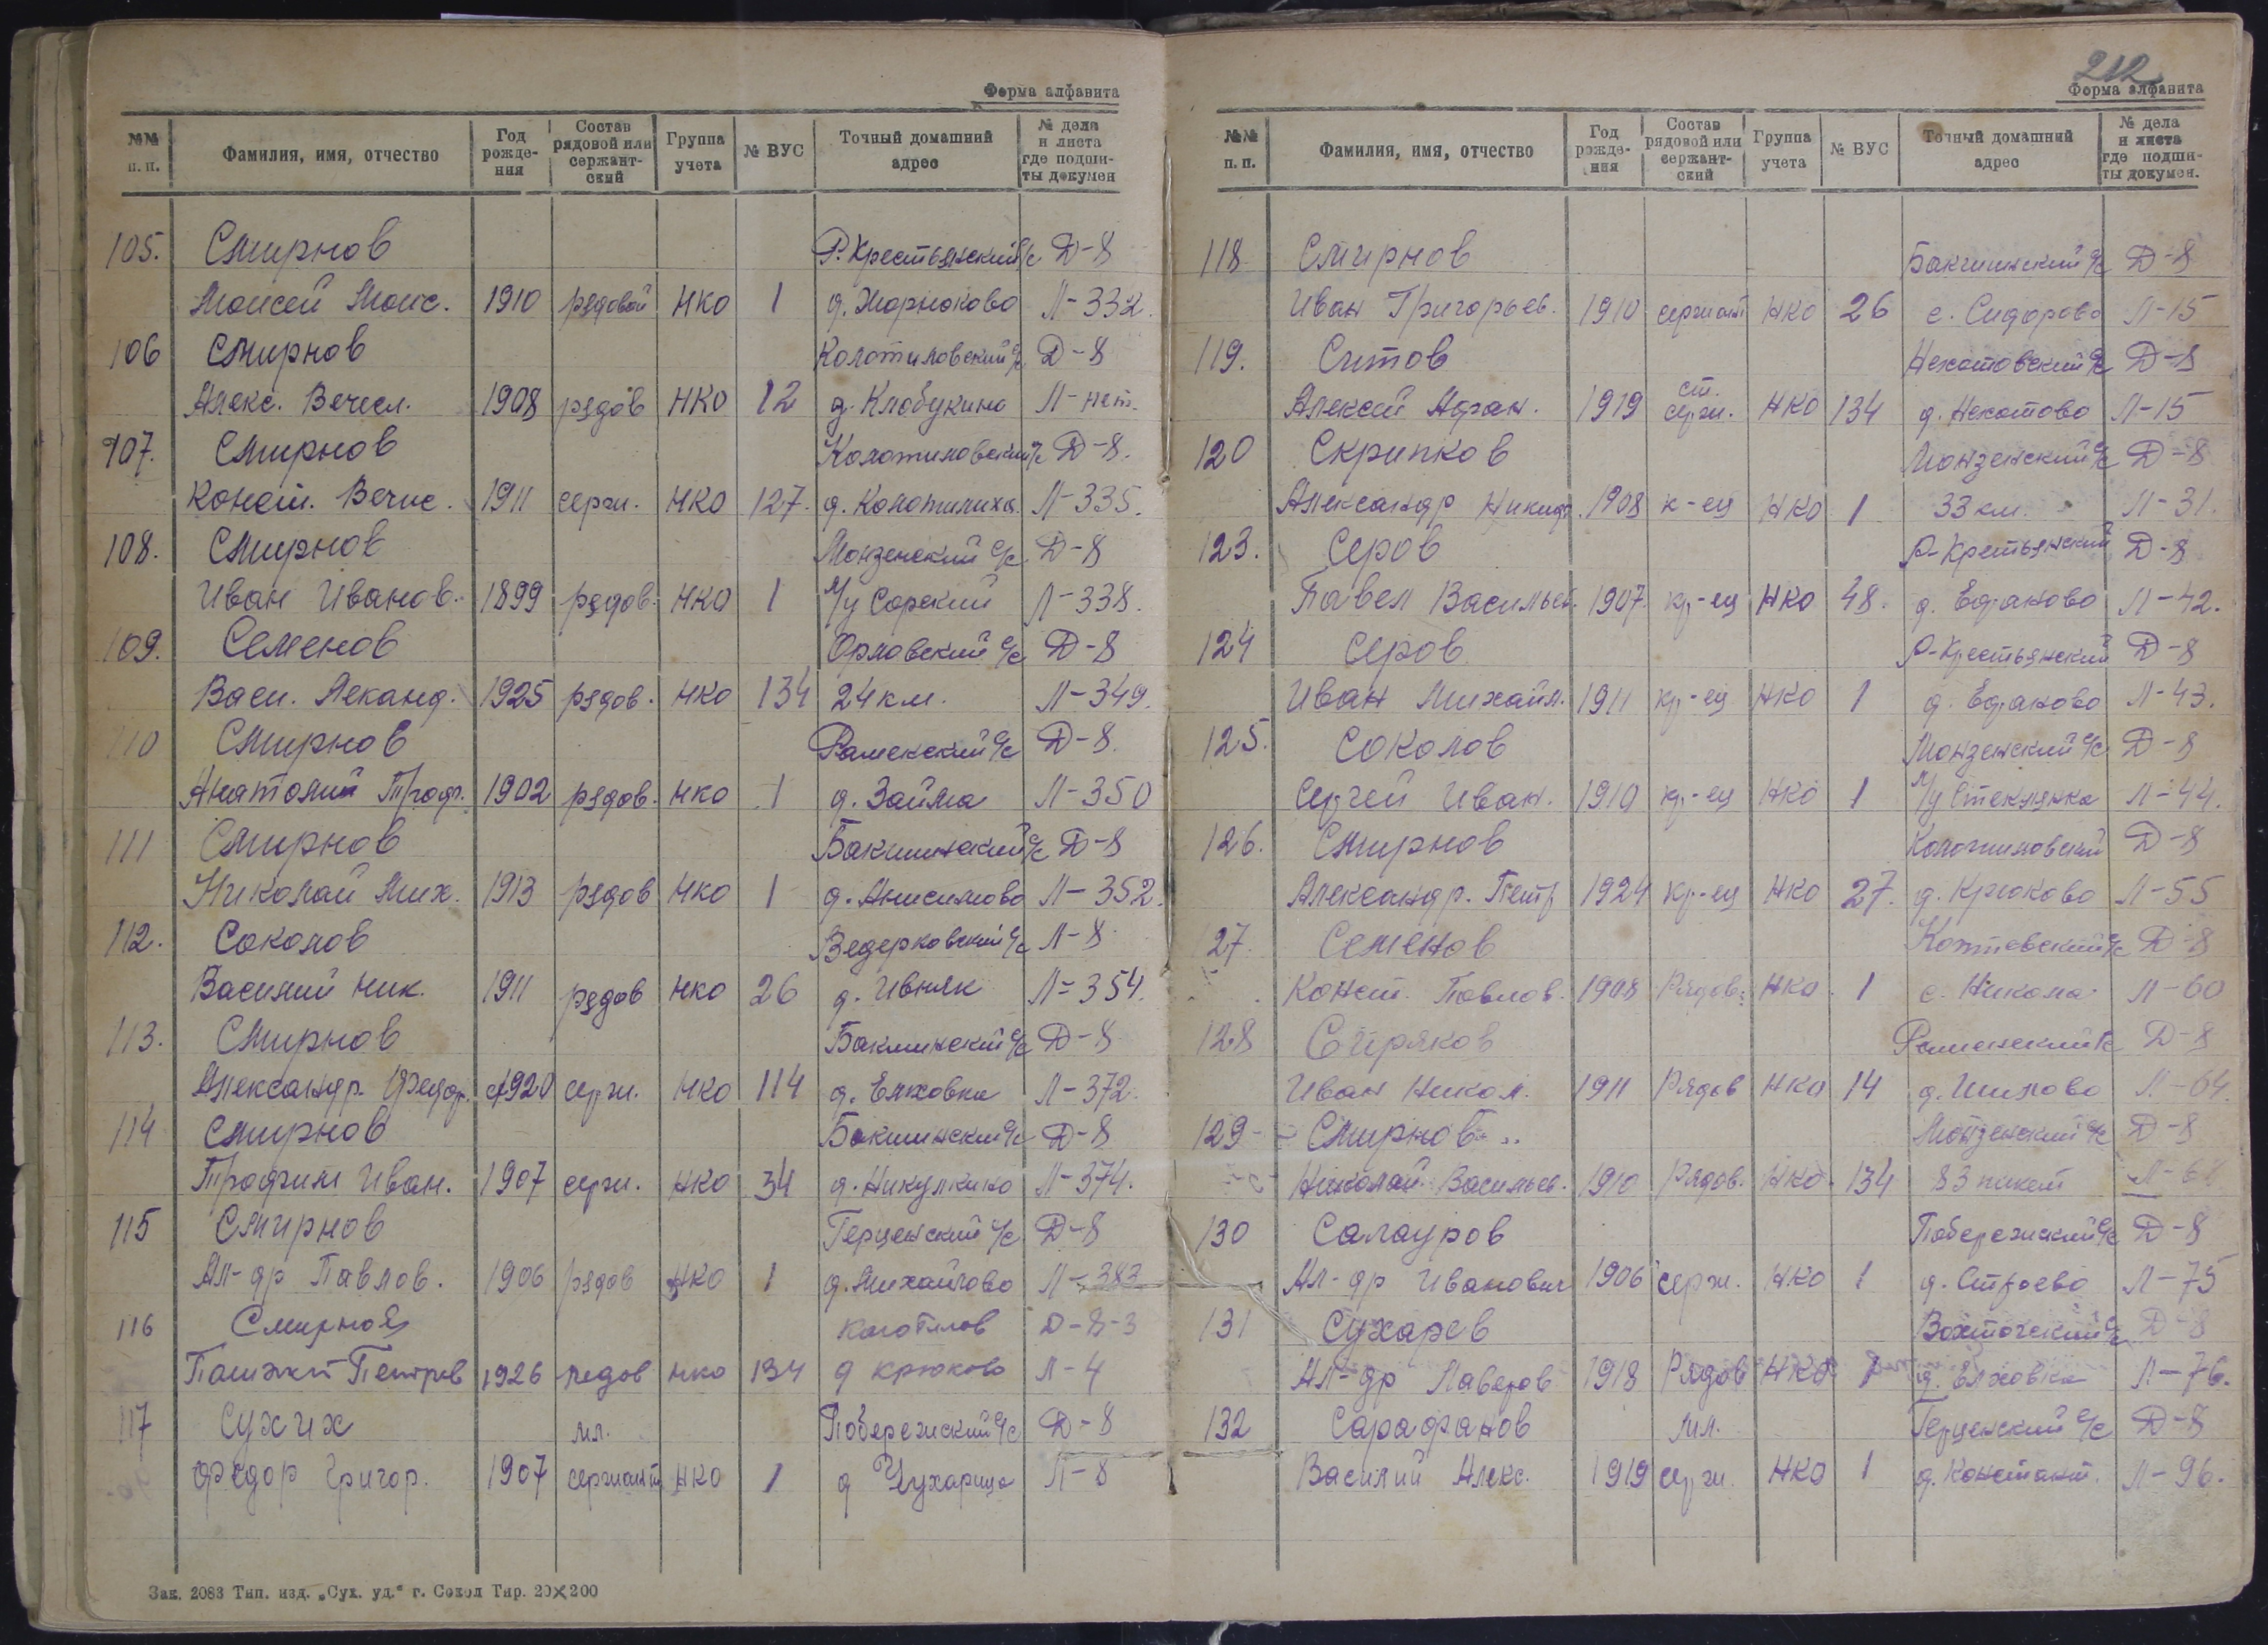 Форма алфавита
№№ п. п. Фамилия, имя, отчество Год рожде-ния Состав рядовой или сержант-ский Группа учета № ВУС Точный домашний адрес № дела и листа где подши-ты докумен
105. Смирнов Р. Крестьянский с/с Д-8
Моисей Моис. 1910 рядовой НКО 1 Л-332.
106 Смирнов Колотиловский с/с Д-8
Алекс. Вечесл. 1908 рядов НКО 12 д. Клобукино Л-нет.
107. Смирнов Колотиловский с/с Д-8.
Конст. Вечис. 1911 серж. НКО 127. д. Колотилиха Л-335.
108. Смирнов Монзенский с/с Д-8
Иван Иванов. 1899 рядов. НКО 1 М/у Сорский Л-338.
109. Семенов Орловский с/с Д-8
Васи. Леканд. 1925 рядов. НКО 134 24 км. Л-349.
110 Смирнов Раменский с/с Д-8.
Анатолий Троф. 1902 рядов. НКО 1 д. Займа Л-350
111 Смирнов Бакшинский с/с Д-8
Николай Мих. 1913 рядов НКО 1 д. Анисимово Л-352.
112. Соколов Ведерковский с/с Л-8
Василий Ник. 1911 рядов НКО 26 д. Ивняк Л-354.
113. Смирнов Бакшинский с/с Д-8
Александр. Федор. 1920 серж. НКО 114 д. Елховка Л-372.
114 Смирнов Бакшинский с/с Д-8
Трофим Иван. 1907 серж. НКО 34 д. Никулкино Л-374.
115 Смирнов Герценский с/с Д-8
Ал-др Павлов. 1906 рядов НКО 1 д. Михайлово Л-383
116 Смирнов Д-8-3
Петров 1926 редов НКО 134 д Крюково Л-4
117 Сухих мл. Побережский с/с Д-8
Федор Григор. 1907 сержант НКО 1 д Чухарица Л-8
Зак. 2083 Тип. изд. „Сух. уд.“ г. Сокол Тир. 20×200
212
Форма алфавита
№№ п. п. Фамилия, имя, отчество Год рожде-ния Состав рядовой или сержант-ский Группа учета № ВУС Точный домашний адрес № дела и листа где подши-ты докумен.
118 Смирнов Бакшинский с/с Д-8
Иван Григорьев. 1910 сержант НКО 26 с. Сидорово Л-15
119. Ситов с/с Д-8
ст.
Алексей Афан. 1919 серж. НКО 134 Л-15
120 Скрипков Монзенский с/с Д-8
Александр Никиф. 1908 к-ец НКО 1 33 км. Л-31.
123. Серов Р-Крестьянский Д-8
Павел Васильев. 1907. кр-ец НКО 48. д. Ефаково Л-42.
124 Серов Р-Крестьянский Д-8
Иван Михайл. 1911 кр-ец НКО 1 д. Ефаково Л-43.
125. Соколов Монзенский с/с Д-8
Сергей Иван. 1910 кр-ец НКО 1 М/у Стеклянка Л-44.
126. Смирнов Колотиловский Д-8
Александр. Петр 1924 кр-ец НКО 27. д. Крюково Л-55
27. Семенов с/с Д-8
Конст. Павлов. 1908 Рядов. НКО 1 с. Никола Л-60
128 Сиряков Раменский с/с Д-8
Иван Никол. 1911 Рядов НКО 14 д. Шилово Л-64.
129 Смирнов Монзенский с/с Д-8
Николай Васильев. 1910 Рядов. НКО 134 83 пикет
130 Салауров Побережский с/с Д-8
Ал-др Иванович 1906 серж. НКО 1 д. Строево Л-75
131 Сухарев Вохтогский с/с Д-8
Ал-др Лаверов 1918 Рядов НКО 1 д. Елховка Л-76.
132 Сарафанов мл. Герценский с/с Д-8
Василий Алекс. 1919 серж. НКО 1 д. Констант. Л-96.